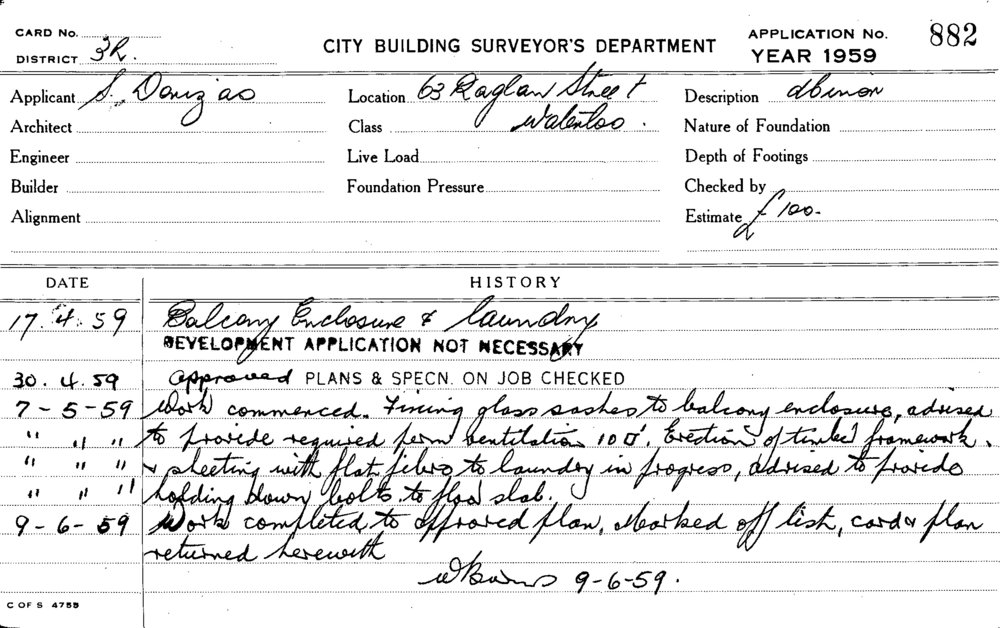 CARD No.
DISTRICT 3R.
CITY BUILDING SURVEYOR'S DEPARTMENT
APPLICATION No. 882
YEAR 1959
Applicant S. Location 63 Raglan Street Description
Architect Class Waterloo. Nature of Foundation
Engineer Live Load Depth of Footings
Builder Foundation Pressure Checked by
Alignment Estimate £100-
DATE HISTORY
17.4.59 Balcony Enclosure & laundry
DEVELOPMENT APPLICATION NOT NECESSARY
30.4.59 Approved PLANS & SPECN. ON JOB CHECKED
7-5-59 Work commenced. Fixing glass sashes to balcony enclosure, advised
" " " to provide required perm ventilation 10□'. Erection of timber framework
" " " & sheeting with flat fibro to laundry in progress, advised to provide
" " " holding down bolts to floor slab.
9-6-59 Work completed, to approved plan, Marked off list, card & plan
returned herewith
9-6-59.
C OF S 4755